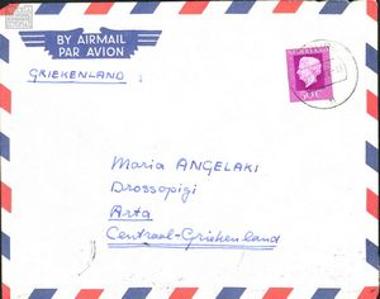 BY AIRMAIL
PAR AVION
GRIEKENLAND
NEDERLAND
Maria ANGELAKI
Drossopigi
Arta
Centraal-Griekenland